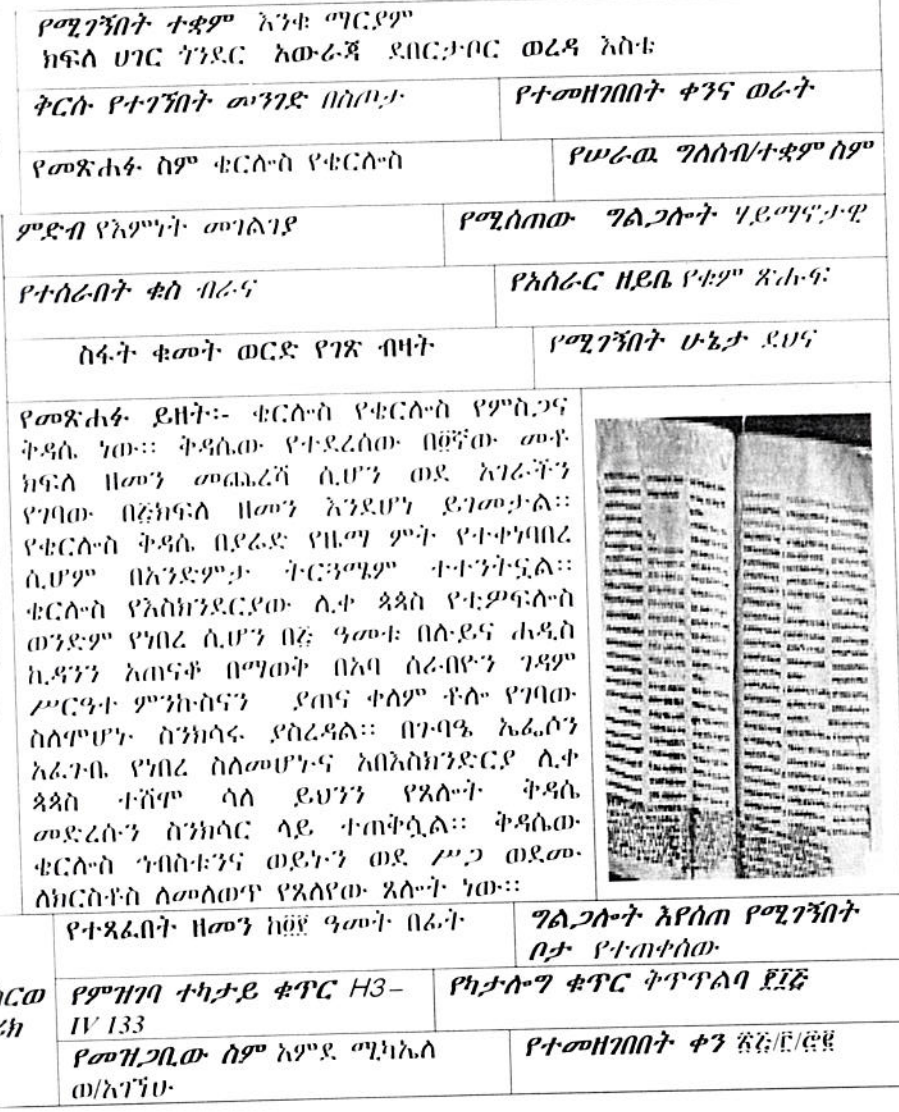 የሚገኝበት ተቋም እንቁ ማርያም
ክፍለ ሀገር ጎንደር አውራጃ ደብርታቦር ወረዳ እስቴ
ቅርሱ የተገኘበት መንገድ በስጦታ
የተመዘገበበት ቀንና ወራት
የመጽሐፉ ስም ቄርሎስ የቄርሎስ
የሠራዉ ግለሰብ/ተቋም ስም
ምድብ የእምነት መገልገያ
የሚሰጠው ግልጋሎት ሃይማኖታዊ
የተሰራበት ቁስ ብራና
የአሰራር ዘይቤ የቁም ጽሑፍ
ስፋት ቁመት ወርድ የገጽ ብዛት
የሚገኝበት ሁኔታ ደህና
የመጽሐፉ ይዘት፡- ቄርሎስ የቄርሎስ የምስጋና
ቅዳሴ ነው። ቅዳሴው የተደረሰው በ፬ኛው መቶ
ክፍለ ዘመን መጨረሻ ሲሆን ወደ አገራችን
የገባው በ፭ክፍለ ዘመን እንደሆነ ይገመታል።
የቄርሎስ ቅዳሴ በያሬድ የዜማ ምት የተቀነባበረ
ሲሆም በአንድምታ ትርጓሜም ተተንትኗል።
ቄርሎስ የእስክንደርያው ሊቀ ጳጳስ የቲዎፍሎስ
ወንድም የነበረ ሲሆን በ፭ ዓመቱ በሉይና ሐዲስ
ኪዳንን አጠናቆ በማወቅ በአባ ሰራብዮን ገዳም
ሥርዓተ ምንኩስናን ያጠና ቀለም ቶሎ የገባው
ስለሞሆኑ ስንክሳሩ ያስረዳል። በጉባዔ ኤፌሶን
አፈጉቤ የነበረ ስለመሆኑና አበእስክንድርያ ሊቀ
ጳጳስ ተሽሞ ሳለ ይህንን የጸሎት ቅዳሴ
መድረሱን ስንክሳር ላይ ተጠቅሷል። ቅዳሴው
ቄርሎስ ኅብስቱንና ወይኑን ወደ ሥጋ ወደሙ
ለክርስቶስ ለመለወጥ የጸለየው ጸሎት ነው።
የተጻፈበት ዘመን ዓመት በፊት
ግልጋሎት እየሰጠ የሚገኝበት
ቦታ የተጠቀሰው
የምዝገባ ተካታይ ቁጥር H3–
IV 133
የካታሎግ ቁጥር ቅጥጥልባ
የመዝጋቢው ስም አምደ ሚካኤል
ወ/አገኘሁ
የተመዘገበበት ቀን